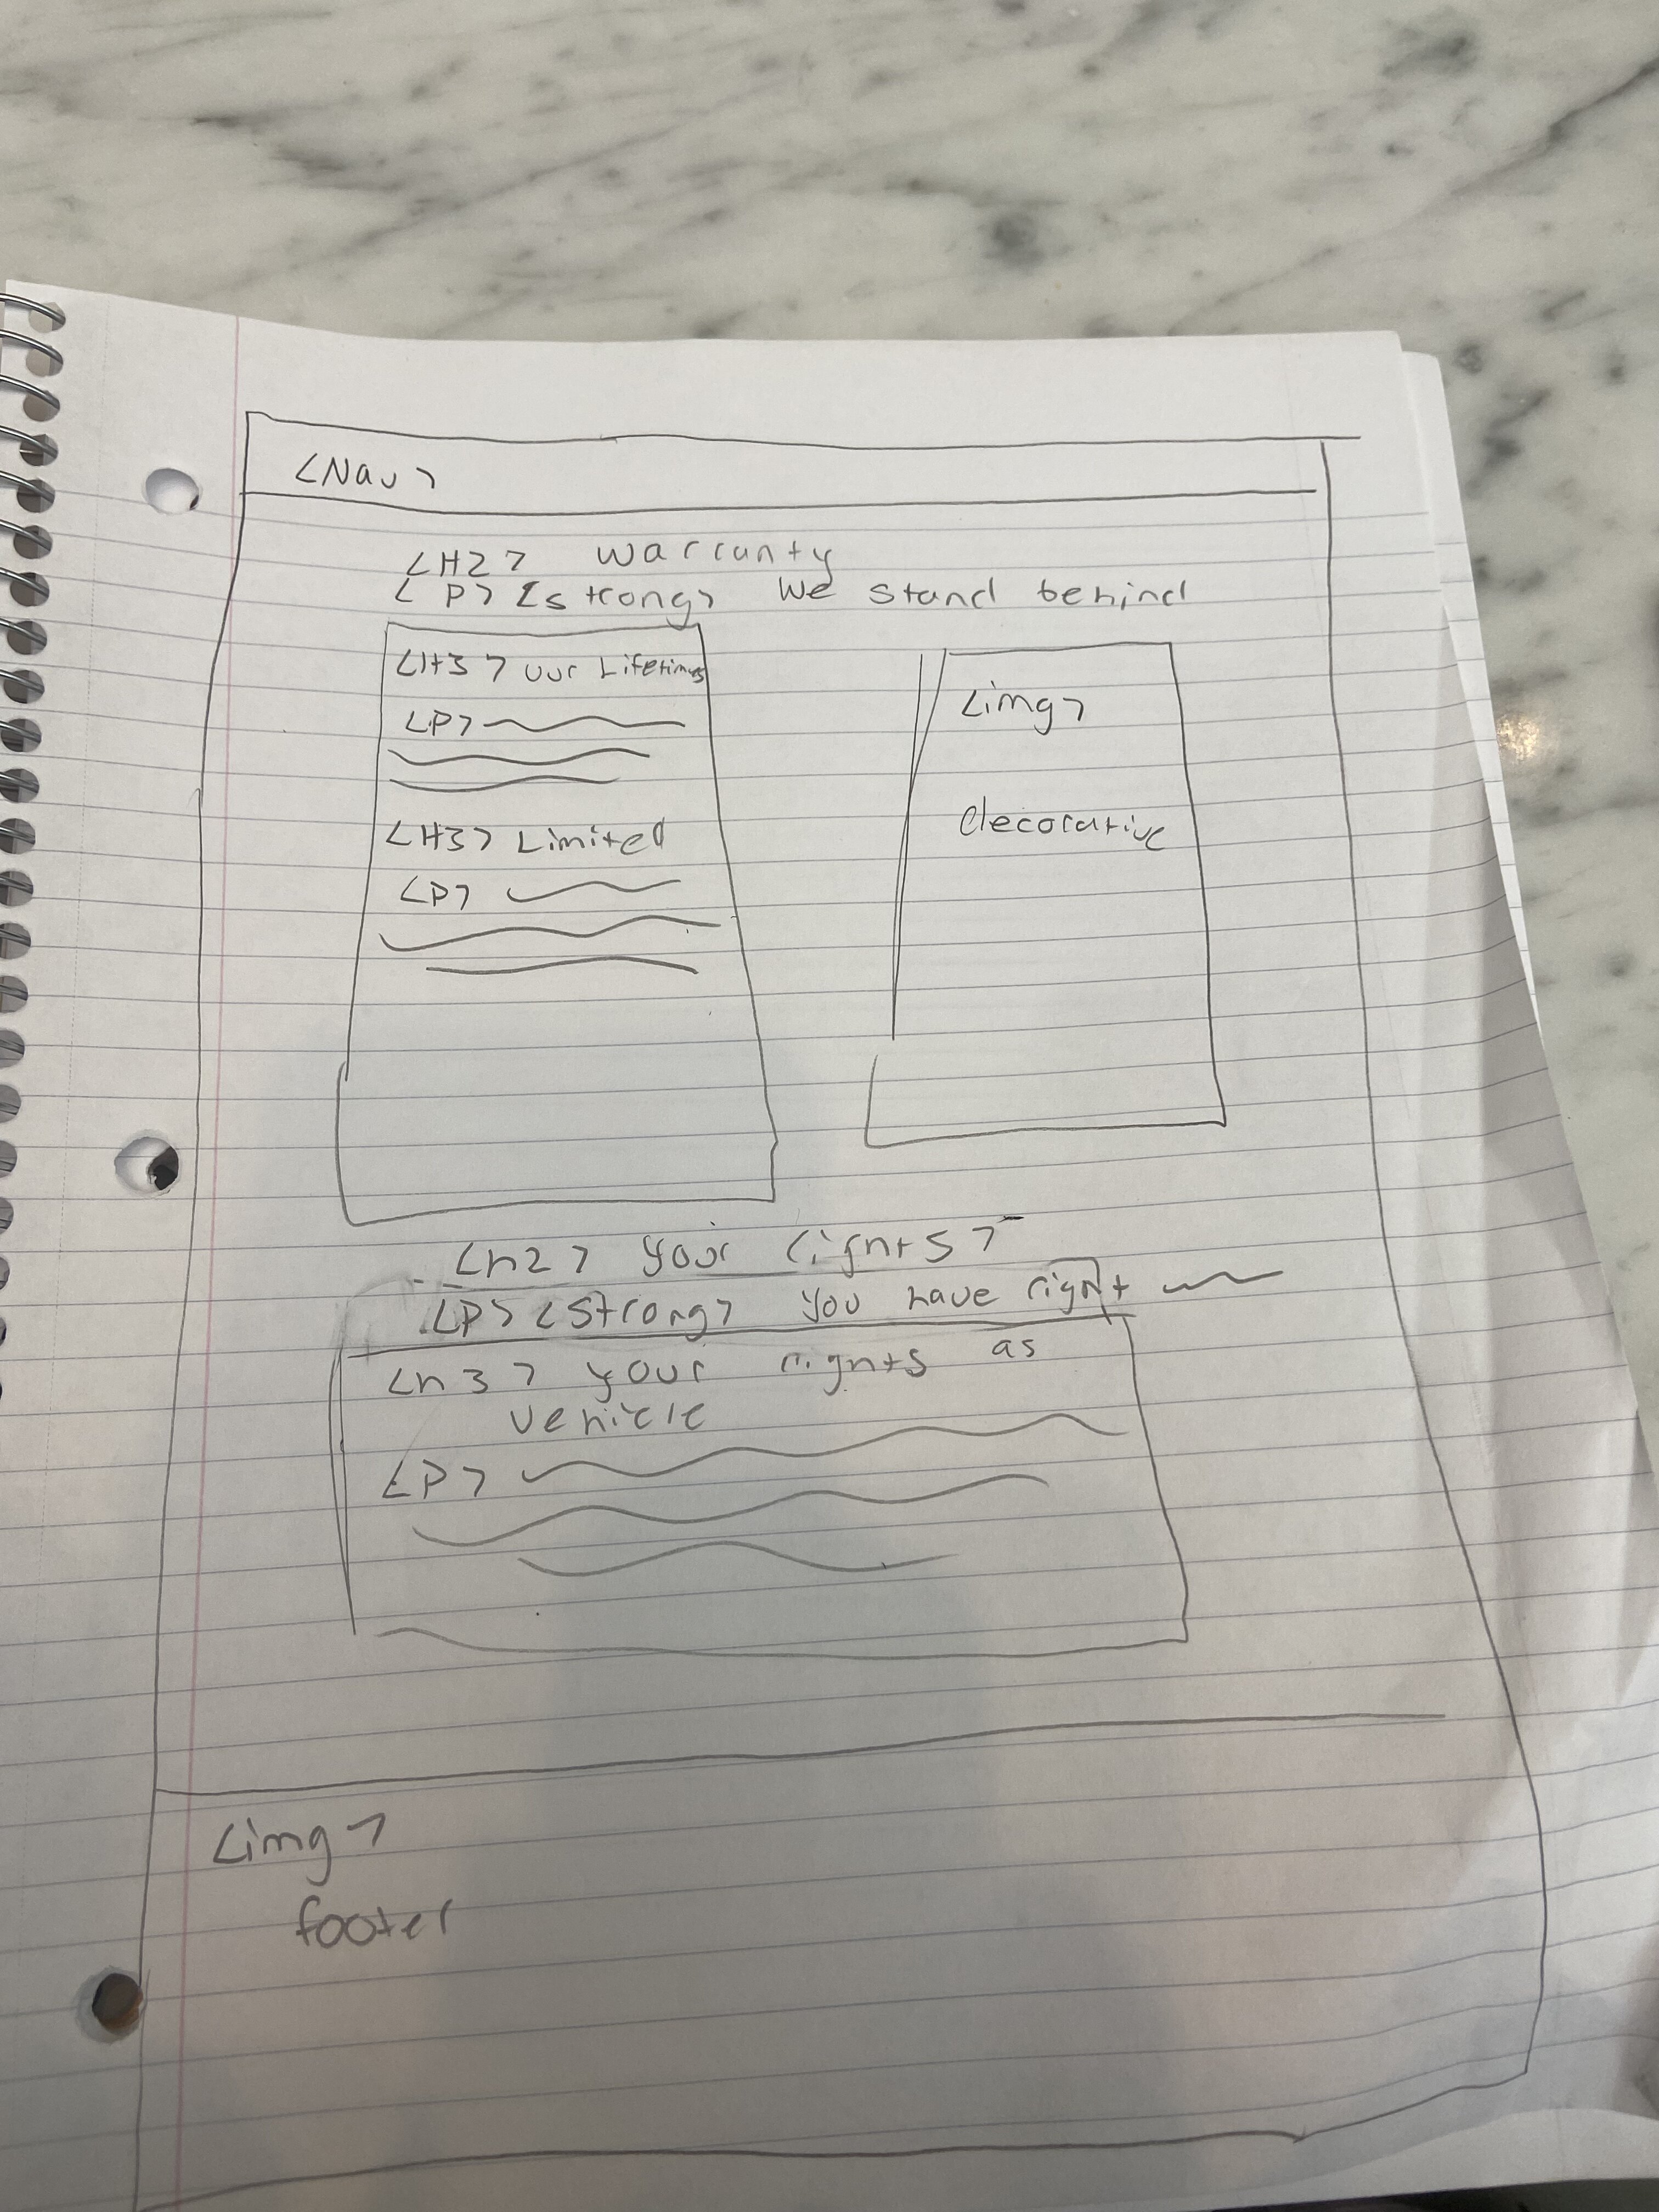 <Nav>
<H2> warranty
<P> <strong> We stand behind
<H3> Our Lifetimes
<P>
<H3> Limited
<P>
<img>
decorative
<h2> your rights>
<P> <strong> You have right
<h3> your rights as
vehicle
<P>
<img>
footer